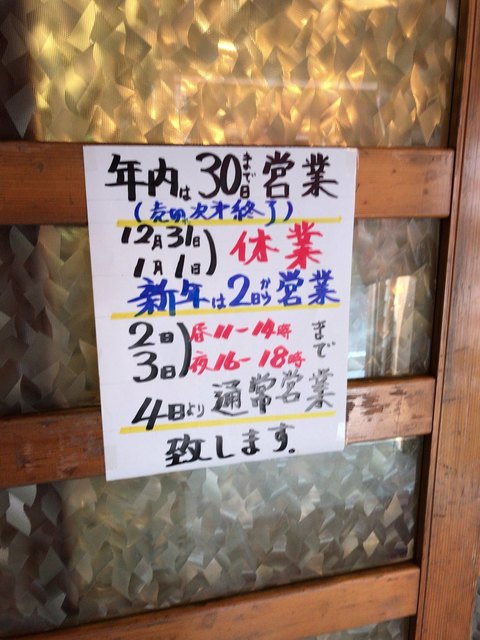 年内は30日まで営業
(売切次第終了)
12月31日
1月1日) 休業
新年は2日から営業
2日 昼11-14時
3日) 夜16-18時 まで
4日より通常営業
致します。